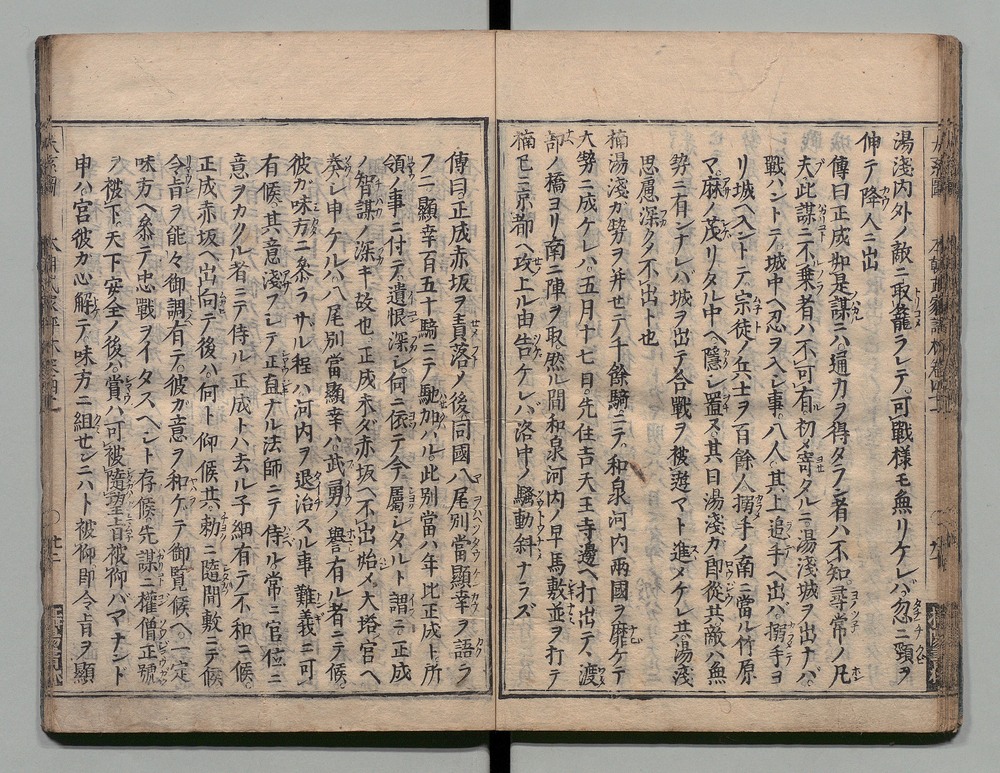 湯淺内外ノ敵ニ取籠ラレテ可戰様モ無リケレバ忽ニ頸ヲ
伸テ降人ニ出
傳曰正成如是謀ニハ通力ヲ得タラン者ハ不知尋常ノ凡
夫此謀ニ不乗者ハ不可有初メ寄タルニ湯淺城ヲ出ナバ
戰ハントテ城中ヘ忍ヲ入シ事八人其上追手ヘ出バ搦手ヨ
リ城ヘ入ントテ宗徒ノ兵士ヲ百餘人搦手ノ南ニ當ル竹原
マ麻ノ茂リタル中ヘ隱シ置ス其日湯淺カ郎從其敵ハ無
勢ニ有ンナレバ城ヲ出テ合戰ヲ被遊マト進メケレ共湯淺
思慮深クノ不出ト也
楠湯淺カ勢ヲ并セテ千餘騎ニテ和泉河内兩國ヲ靡ケテ
大勢ニ成ケレハ五月十七日先住吉天王寺邊ヘ打出テ渡
部ノ橋ヨリ南ニ陣ヲ取然ル間和泉河内ノ早馬敷並ヲ打テ
楠已ニ京都ヘ攻上ル由告ケレバ洛中ノ騒動斜ナラズ
傳曰正成赤坂ヲ責落ノ後同國八尾別當顯幸ヲ語ラ
フニ顯幸百五十騎ニテ馳加ハル此別當ハ年比正成ト所
領ノ事ニ付テ遺恨深シ何ニ依テ今屬シタルト謂ニ正成
ノ智謀ノ深キ故也正成未ダ赤坂ヘ不出始メ大塔宮ヘ
奏シ申ケルハ八尾別當顯幸ハ武勇ノ譽有ル者ニテ候
彼カ味方ニ参ラサル程ハ河内ヲ退治スル事難義ニ可
有候其意淺フシテ正直ナル法師ニテ侍ル常ニ官位ニ
意ヲカクル者ニテ侍ル正成トハ去ル子細有テ不和ニ候
正成赤坂ヘ出向テ後ハ何ト仰候共勅ニ隨間敷ニテ候
令旨ヲ能々御調有テ彼カ意ヲ和ゲテ御覧候ヘ一定
味方ヘ参テ忠戰ヲイタスヘシト存候先謀ニ權僧正號
ヲ被下天下安全ノ後賞ハ可被隨望旨被仰バマナンド
申ス宮彼カ心解テ味方ニ組センニハト被仰即令旨ヲ顯